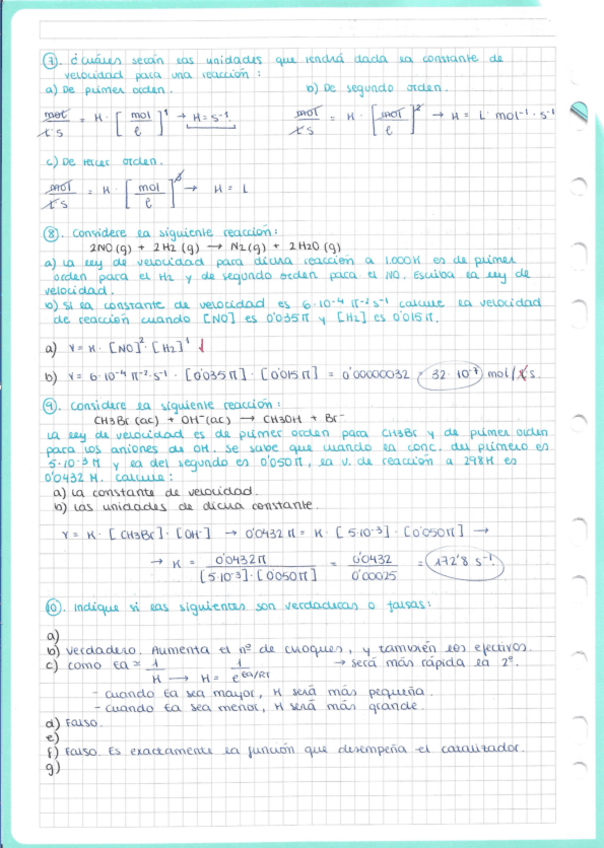 ⑦. ¿Cuáles serán las unidades que tendrá dada la constante de
velocidad para una reacción:
a) De primer orden. b) De segundo orden.
mol/l·s = K · [mol/l]¹ → K = s⁻¹ mol/l·s = K · [mol/l]² → K = L · mol⁻¹ · s⁻¹
c) De tercer orden.
mol/l·s = K · [mol/l]³ → K = L
⑧. Considere la siguiente reacción:
2NO (g) + 2H2 (g) → N2 (g) + 2H2O (g)
a) La ley de velocidad para dicha reacción a 1.000K es de primer
orden para el H2 y de segundo orden para el NO. Escriba la ley de
velocidad.
b) Si la constante de velocidad es 6·10⁻⁴ M⁻² s⁻¹ calcule la velocidad
de reacción cuando [NO] es 0'035M y [H2] es 0'015M.
a) V = K · [NO]² · [H2]¹
b) V = 6·10⁻⁴ M⁻² · s⁻¹ · [0'035M] · [0'015M] = 0'00000032 = 32·10⁻⁷ mol/l s.
⑨. Considere la siguiente reacción:
CH3Br (ac) + OH⁻ (ac) → CH3OH + Br⁻
La ley de velocidad es de primer orden para CH3Br y de primer orden
para los aniones de OH. Se sabe que cuando la conc. du primero es
5·10⁻³ M y la del segundo es 0'050M, la v. de reacción a 298K es
0'0432 M. Calcule:
a) La constante de velocidad.
b) Las unidades de dicha constante.
V = K · [CH3Br] · [OH⁻] → 0'0432 M = K · [5·10⁻³] · [0'050M] →
→ K = 0'0432M / [5·10⁻³]·[0'050M] = 0'0432 / 0'00025 = 172'8 s⁻¹.
⑩. Indique si las siguientes son verdaderas o falsas:
a)
b) Verdadero. Aumenta el nº de choques, y también los efectivos.
c) Como Ea ≈ 1/K → K = 1/e^(Ea/RT) → será más rápida la 2ª.
- Cuando Ea sea mayor, K será más pequeña.
- Cuando Ea sea menor, K será más grande.
d) Falso.
e)
f) Falso. Es exactamente la función que desempeña el catalizador.
g)